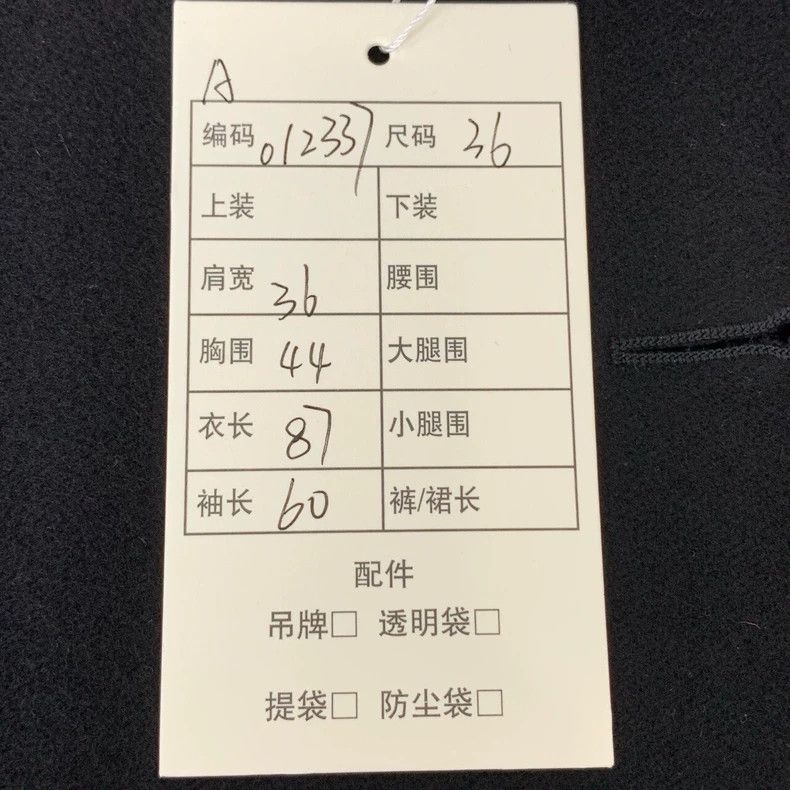 A
编码 01237 尺码 36
上装 下装
肩宽 36 腰围
胸围 44 大腿围
衣长 87 小腿围
袖长 60 裤/裙长
配件
吊牌□ 透明袋□
提袋□ 防尘袋□